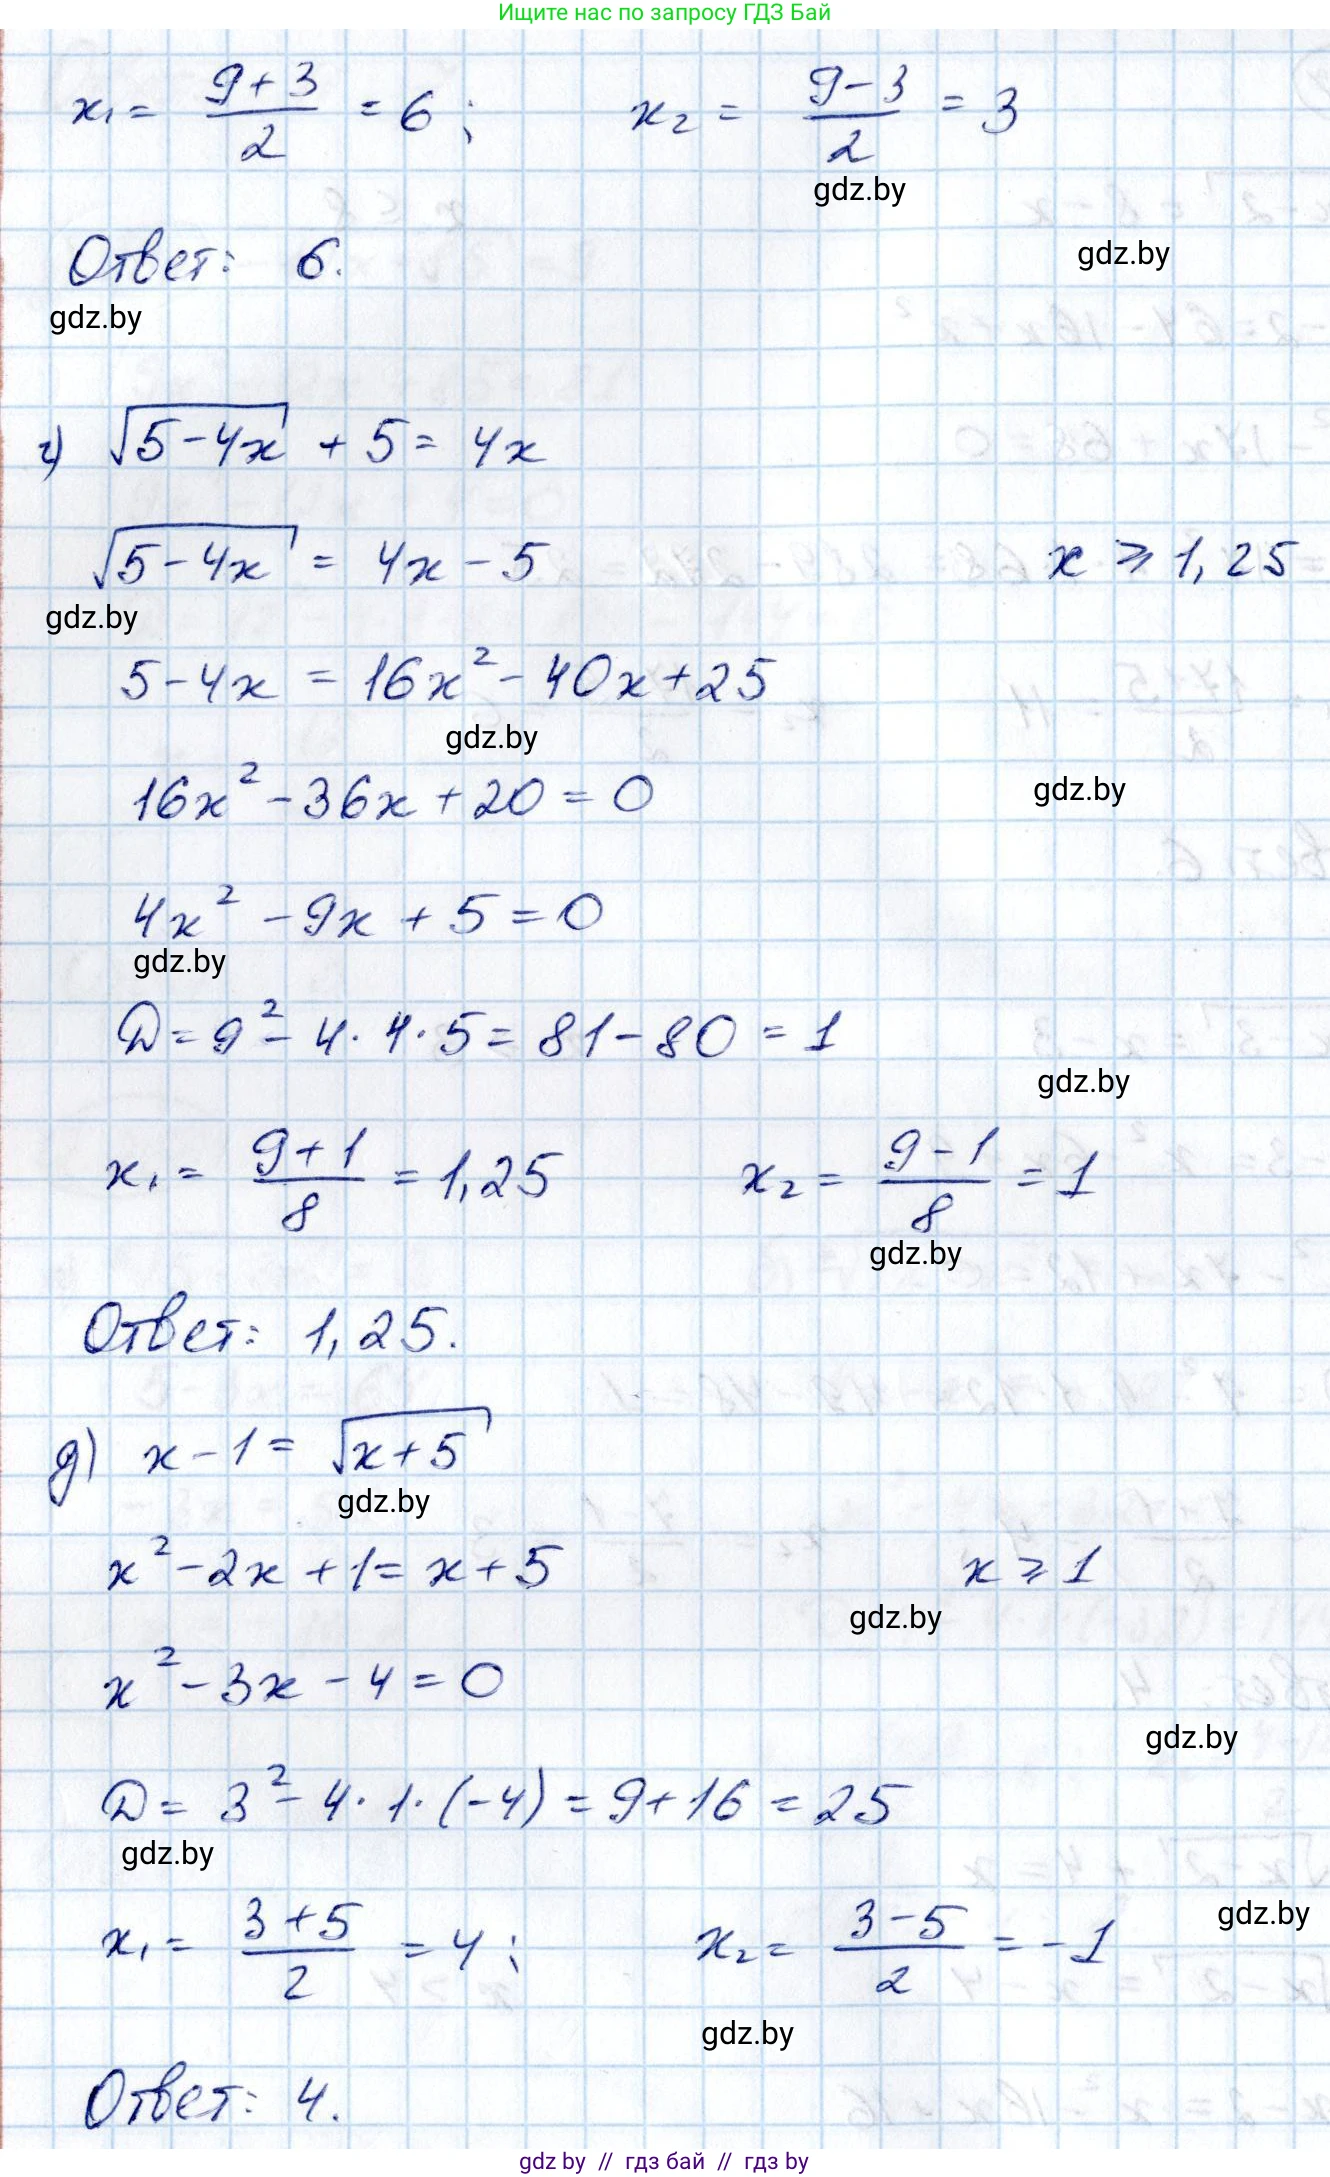 Ищите нас по запросу ГДЗ Бай
x₁ = (9+3)/2 = 6; x₂ = (9-3)/2 = 3
gdz.by
Ответ: 6.
gdz.by
gdz.by
г) √(5-4x) + 5 = 4x
√(5-4x) = 4x - 5 x ⩾ 1,25
gdz.by
5-4x = 16x² - 40x + 25
gdz.by
16x² - 36x + 20 = 0
gdz.by
4x² - 9x + 5 = 0
gdz.by
D = 9² - 4·4·5 = 81 - 80 = 1
gdz.by
x₁ = (9+1)/8 = 1,25 x₂ = (9-1)/8 = 1
gdz.by
Ответ: 1,25.
д) x - 1 = √(x+5)
gdz.by
x² - 2x + 1 = x + 5 x ⩾ 1
gdz.by
x² - 3x - 4 = 0
gdz.by
D = 3² - 4·1·(-4) = 9 + 16 = 25
gdz.by
gdz.by
x₁ = (3+5)/2 = 4; x₂ = (3-5)/2 = -1
gdz.by
Ответ: 4.
gdz by // гдз бай // гдз by